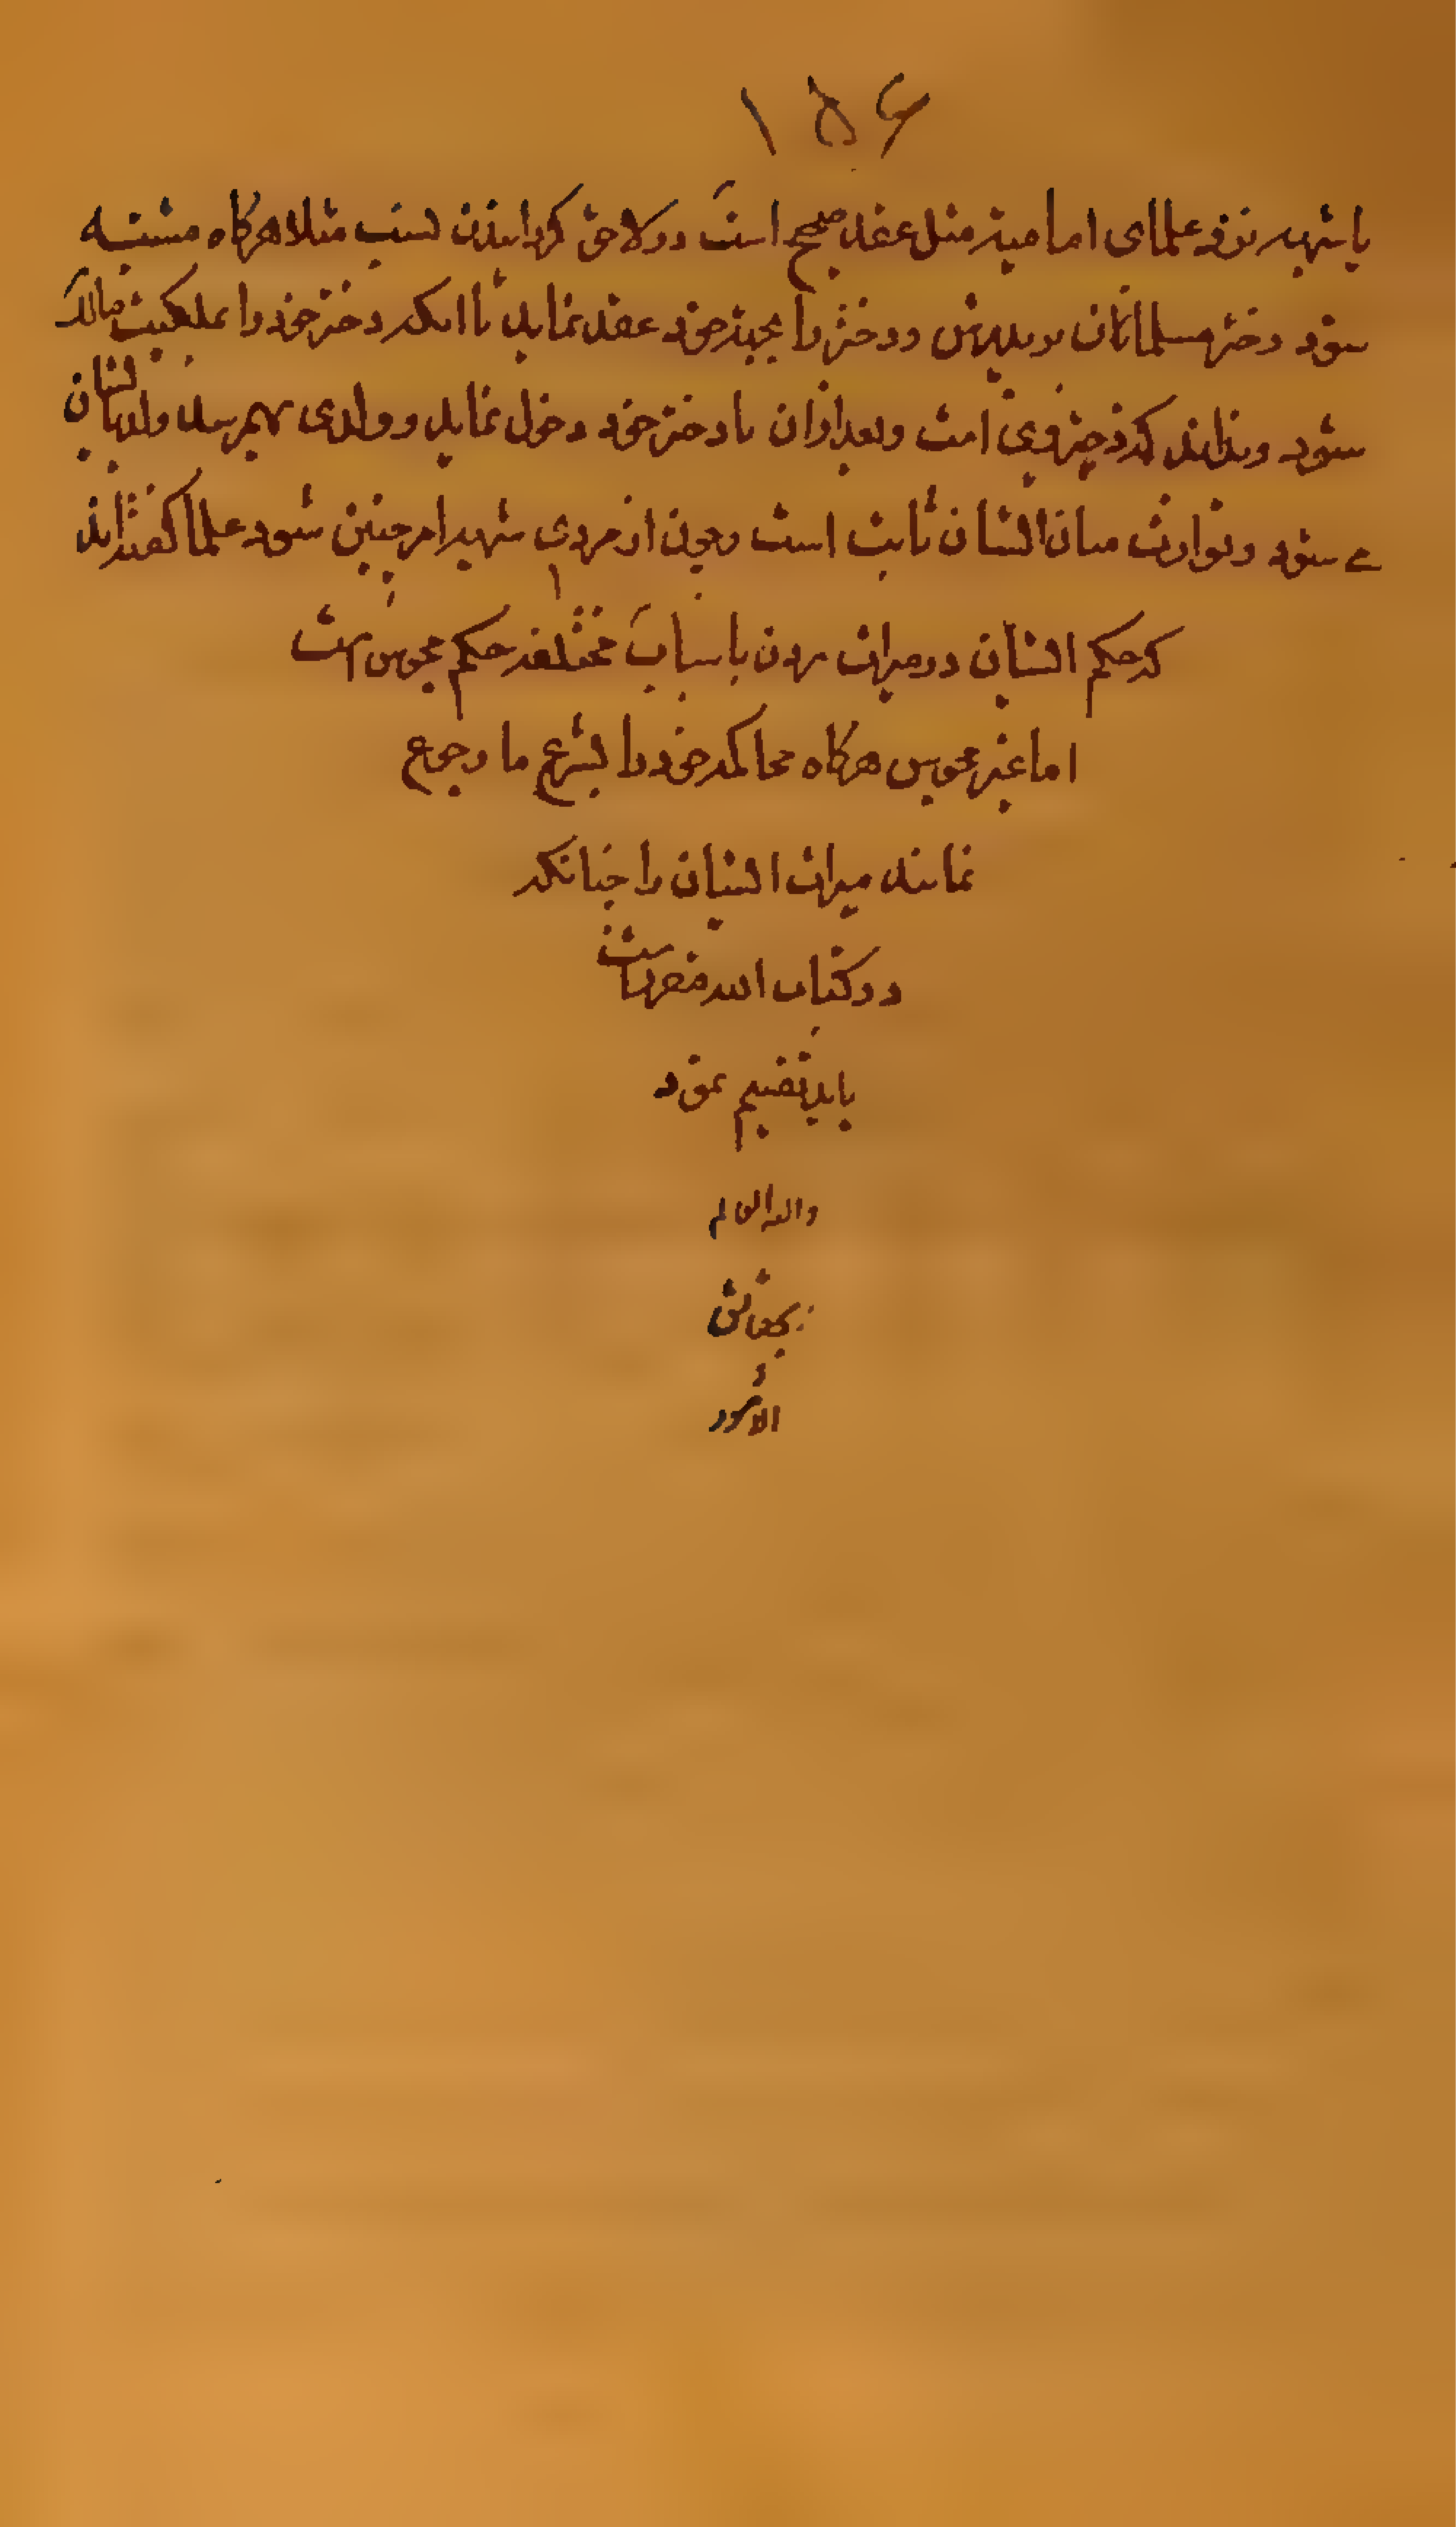 ۱۵۶
باشبهه نزد علمای امامیه مثل عقد صحیح است در لاحق کردانیدن نسب مثلا هرکاه مشتبه
شود دختر مسلمانان بر پدرش و دختر را بجهة خود عقد نماید یا انکه دختر خود را بملکیت مالک
شود و نداند که دختر وی است و بعد از ان با دختر خود دخول نماید و ولدی بهم رسد ولد بایشان
می شود و توارث میان ایشان ثابت است و چون از مردی شبهه امر چنین شود علما کفته اند
که حکم ایشان در میراث بردن باسباب مختلفه حکم مجوس است
اما غیر مجوس هرکاه محاکمه خود را بشرع ما رجوع
نمایند میراث ایشان را چنانکه
در کتاب الله مقرر است
باید تقسیم نمود
والله العالم
بحقائق
الامور